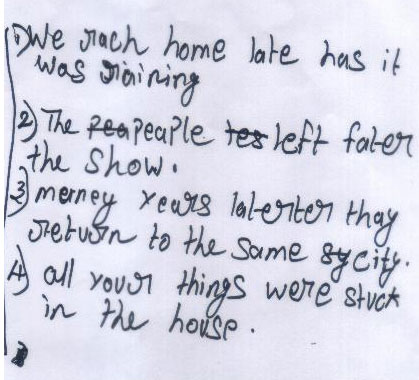 1) We rach home late has it
was raining
2) The pea peaple tes left fater
the show.
3) merney years laterter thay
return to the same sy city.
4) all your things were stuck
in the house.